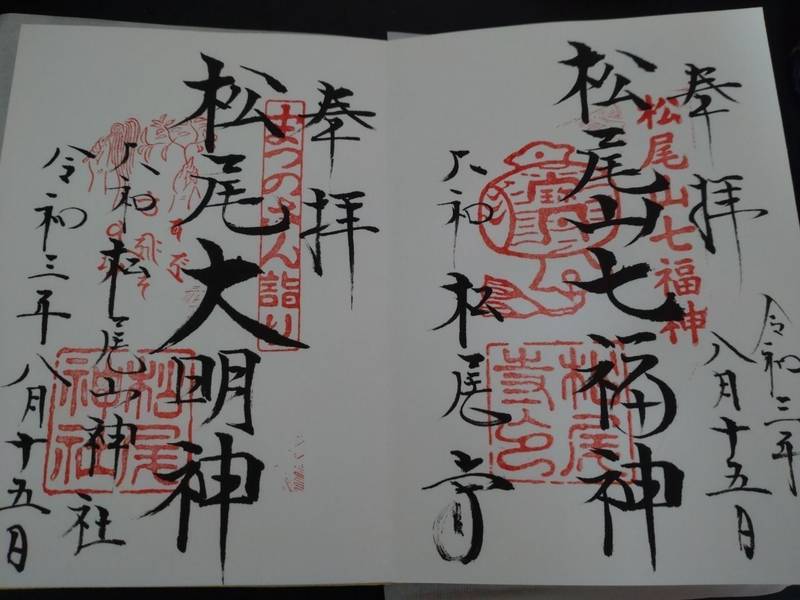 奉拝
令和三年
八月十五日
松尾山七福神
松尾山七福神
松尾寺印
大和
松尾寺
奉拝
まつのさん詣り
松尾大明神
松尾神社
大和松尾山神社
令和三年八月十五日